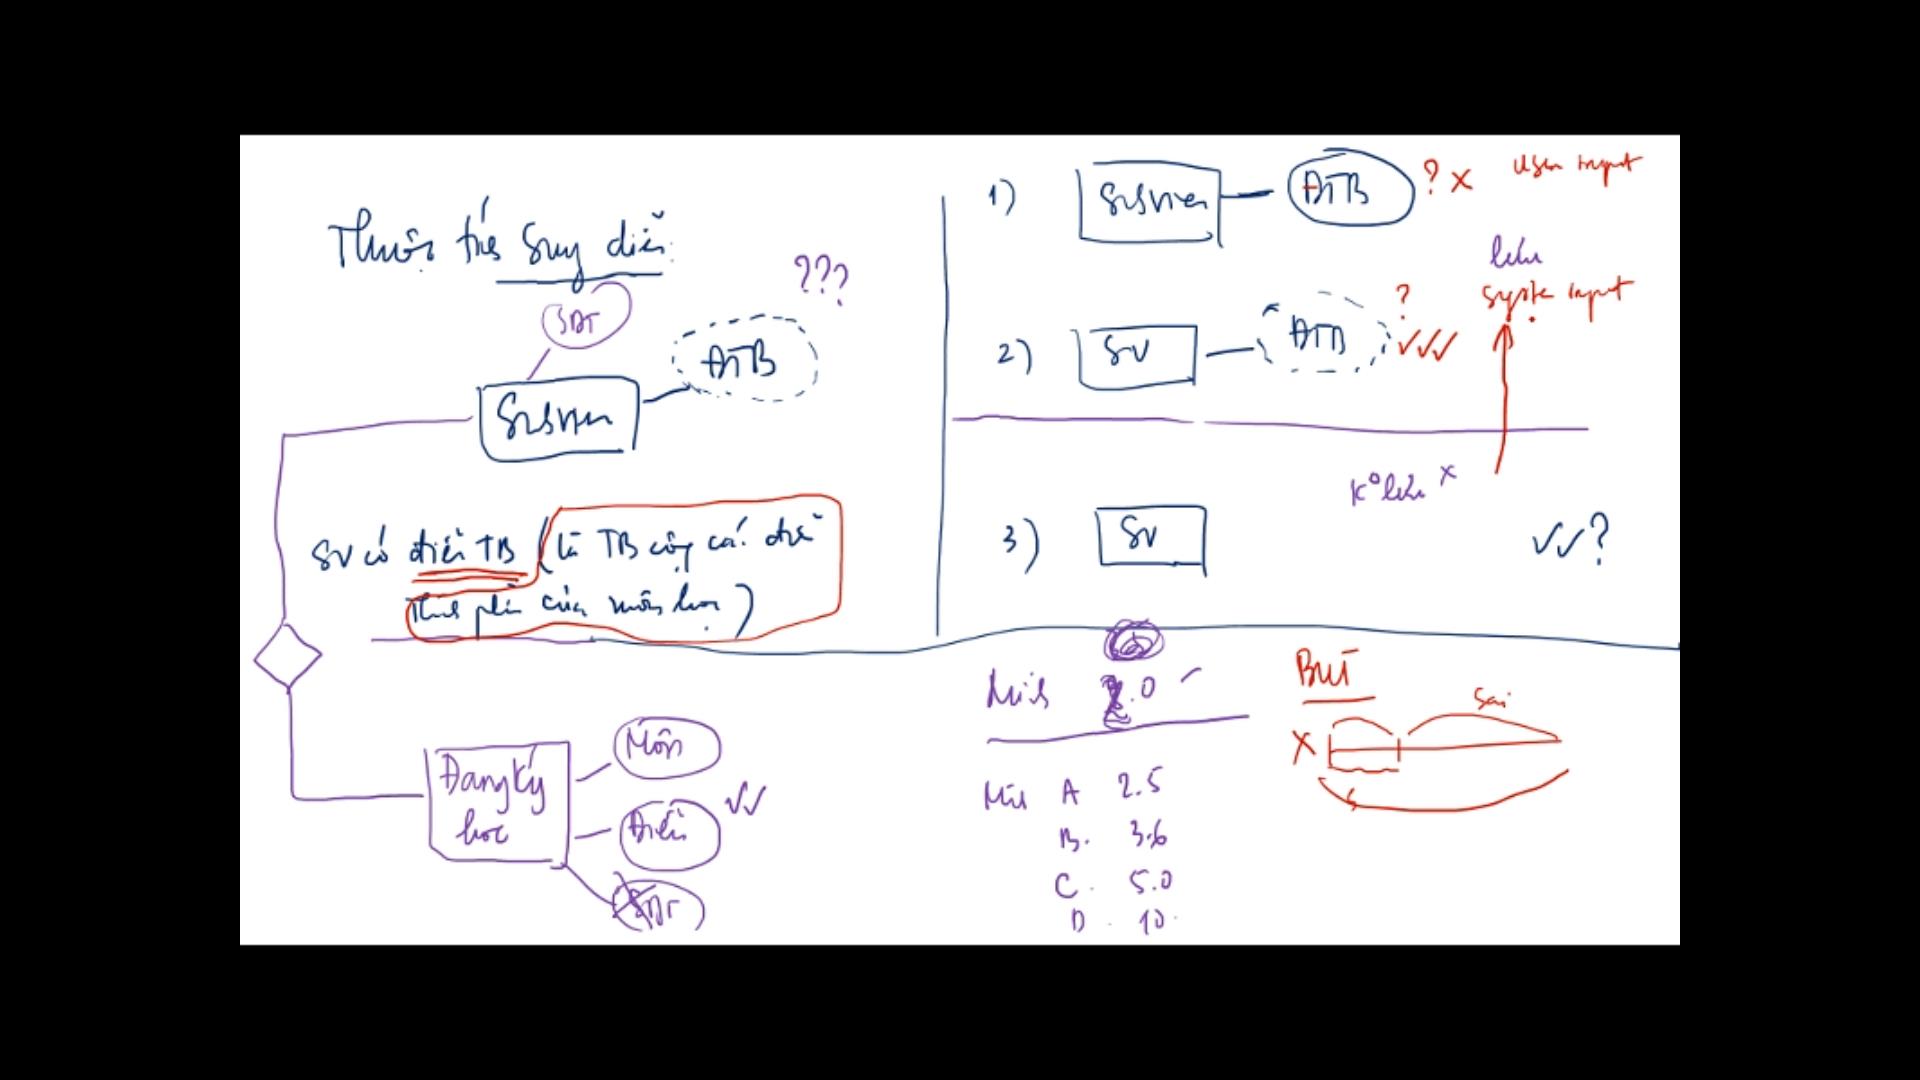 Thuộc tính suy diễn
???
SĐT
ĐTB
Sinh viên
SV có điểm TB (là TB cộng các điểm
thành phần của môn học)
Môn
Đăng ký
học
Điểm
SĐT
1) Sinh viên ĐTB ? X User input
lưu
system input
2) SV ĐTB ?
K° lưu x
3) SV ?
.0
A 2.5
B. 3.6
C. 5.0
D. 10.
sai
X